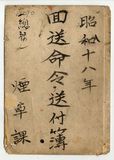 昭和十八年
回送命令・送付簿
煙草課